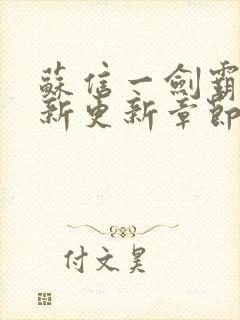 蘇信一劍霸
新更新章節
付文昊